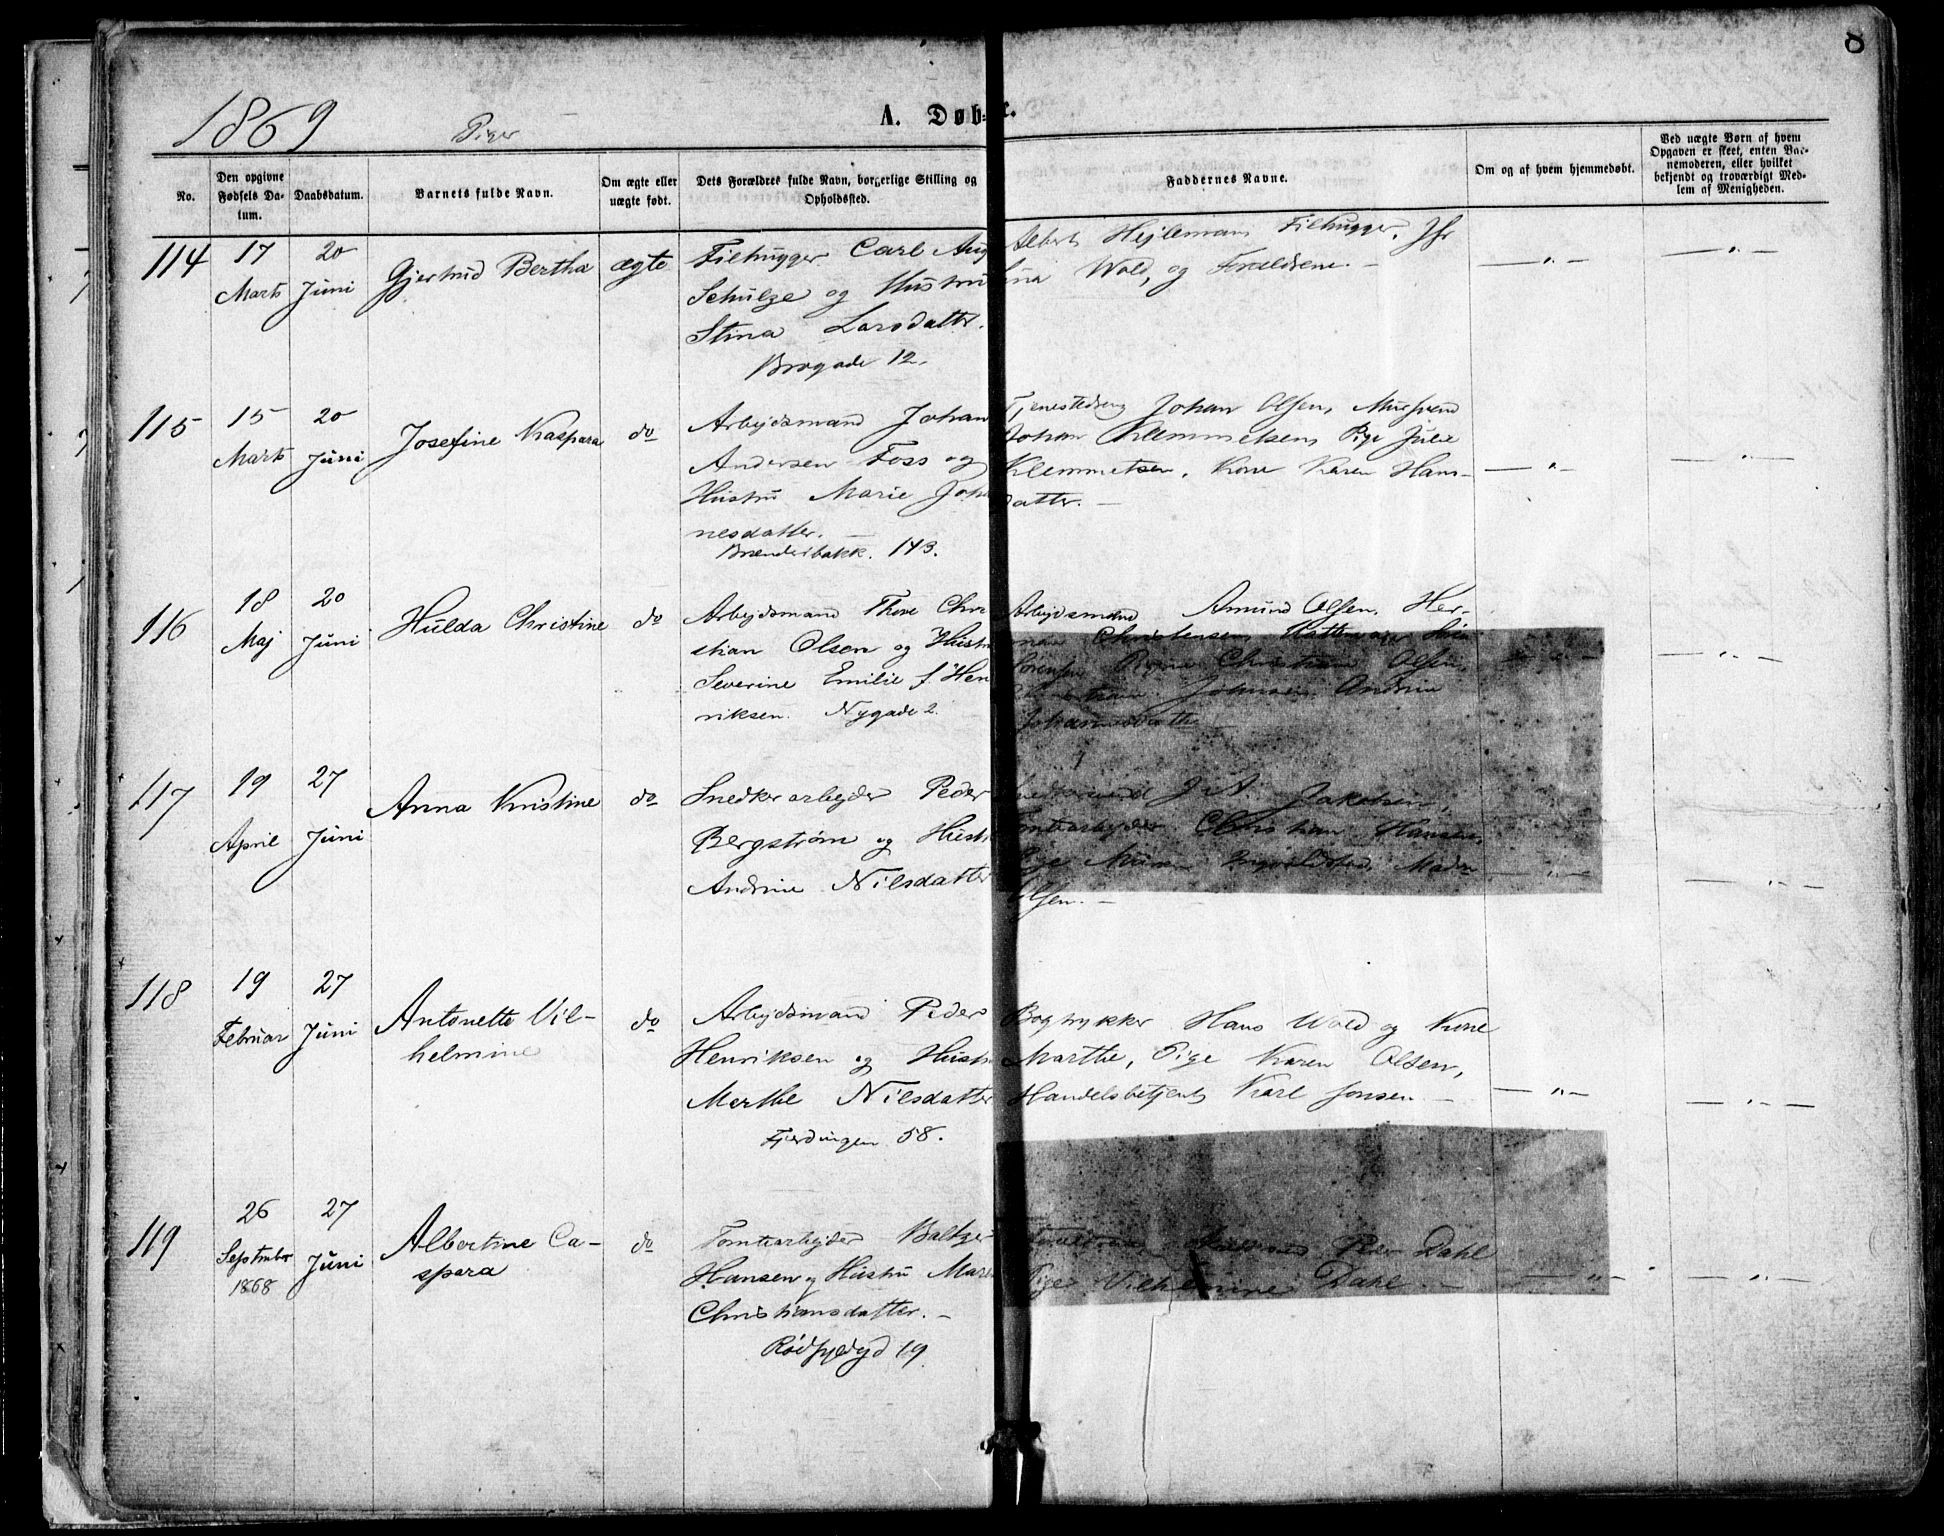 8
1869
Piger
A. Døb-
e.
No.
Den opgivne Fødsels Da-
tum.
Daabsdatum.
Barnets fulde Navn.
Om ægte eller
uægte født.
Dets Forældres fulde Navn, borgerlige Stilling og
Opholdssted.
Faddernes Navne.
Om og af hvem hjemmedøbt.
Ved uægte Børn af hvem
Opgaven er skeet, enten Bar-
nemoderen, eller hvilket
bekjendt og troværdigt Med-
lem af Menigheden.
114
17
Marts
20
Juni
Gjertrud Bertha
ægte
Filehugger Carl Aug
Schulze og Hustru
Stina Larsdatter.
Brogade 12.
Albert Hejlemann Filehugger, Jfr
Lina Wold, og Forældrene. —
— „ —
— „ —
115
15
Marts
20
Juni
Josefine Kaspara
do
Arbejdsmand Johan
Andersen Foss og
Hustru Marie Joha
nesdatter. —
Brænderibakk. 143.
Tjenestedreng Johan Olsen, Mursvend
Johan Klemmetsen, Pige Julie
Klemmetsen, Kone Karen Hans-
datter. —
— „ —
— „ —
116
18
Maj
20
Juni
Hulda Christine
do
Arbejdsmand Thore Chri
stian Olsen og Hustru
Severine Emilie f. Hen
riksen. Nygade 2.
Arbejdsmænd Amund Olsen, Her-
man Christensen,
Sørensen Christian Olsen,
Johnsen Andrine
Johannesdatter
— „ —
— „ —
117
19
April
27
Juni
Anna Kristine
do
Snedkerarbejder Peder
Bergstrøm og Hustr
Andrine Nilsdatter
Snedkersvend J. A. Jakobsen,
Tomtearbejder Christian Hansen,
Pige
Olsen. —
— „ —
— „ —
118
19
Februar
27
Juni
Antonette Vil-
helmine
do
Arbejdsmand Peder
Henriksen og Hustr
Marthe Nilsdatter
Fjerdingen 58.
Bogtrykker Hans Wold og Kone
Marthe, Pige Karen Olsen,
Handelsbetjent Karl Jonsen. —
— „ —
— „ —
119
26
September
1868
27
Juni
Albertine Ca-
spara
do
Tomtearbejder Baltzer
Hansen og Hustru Mare
Christiansdatter. —
Rødfyldgd 19
Forældrene, Peder Dahl
Pige Vilhelmine Dahl. —
— „ —
— „ —